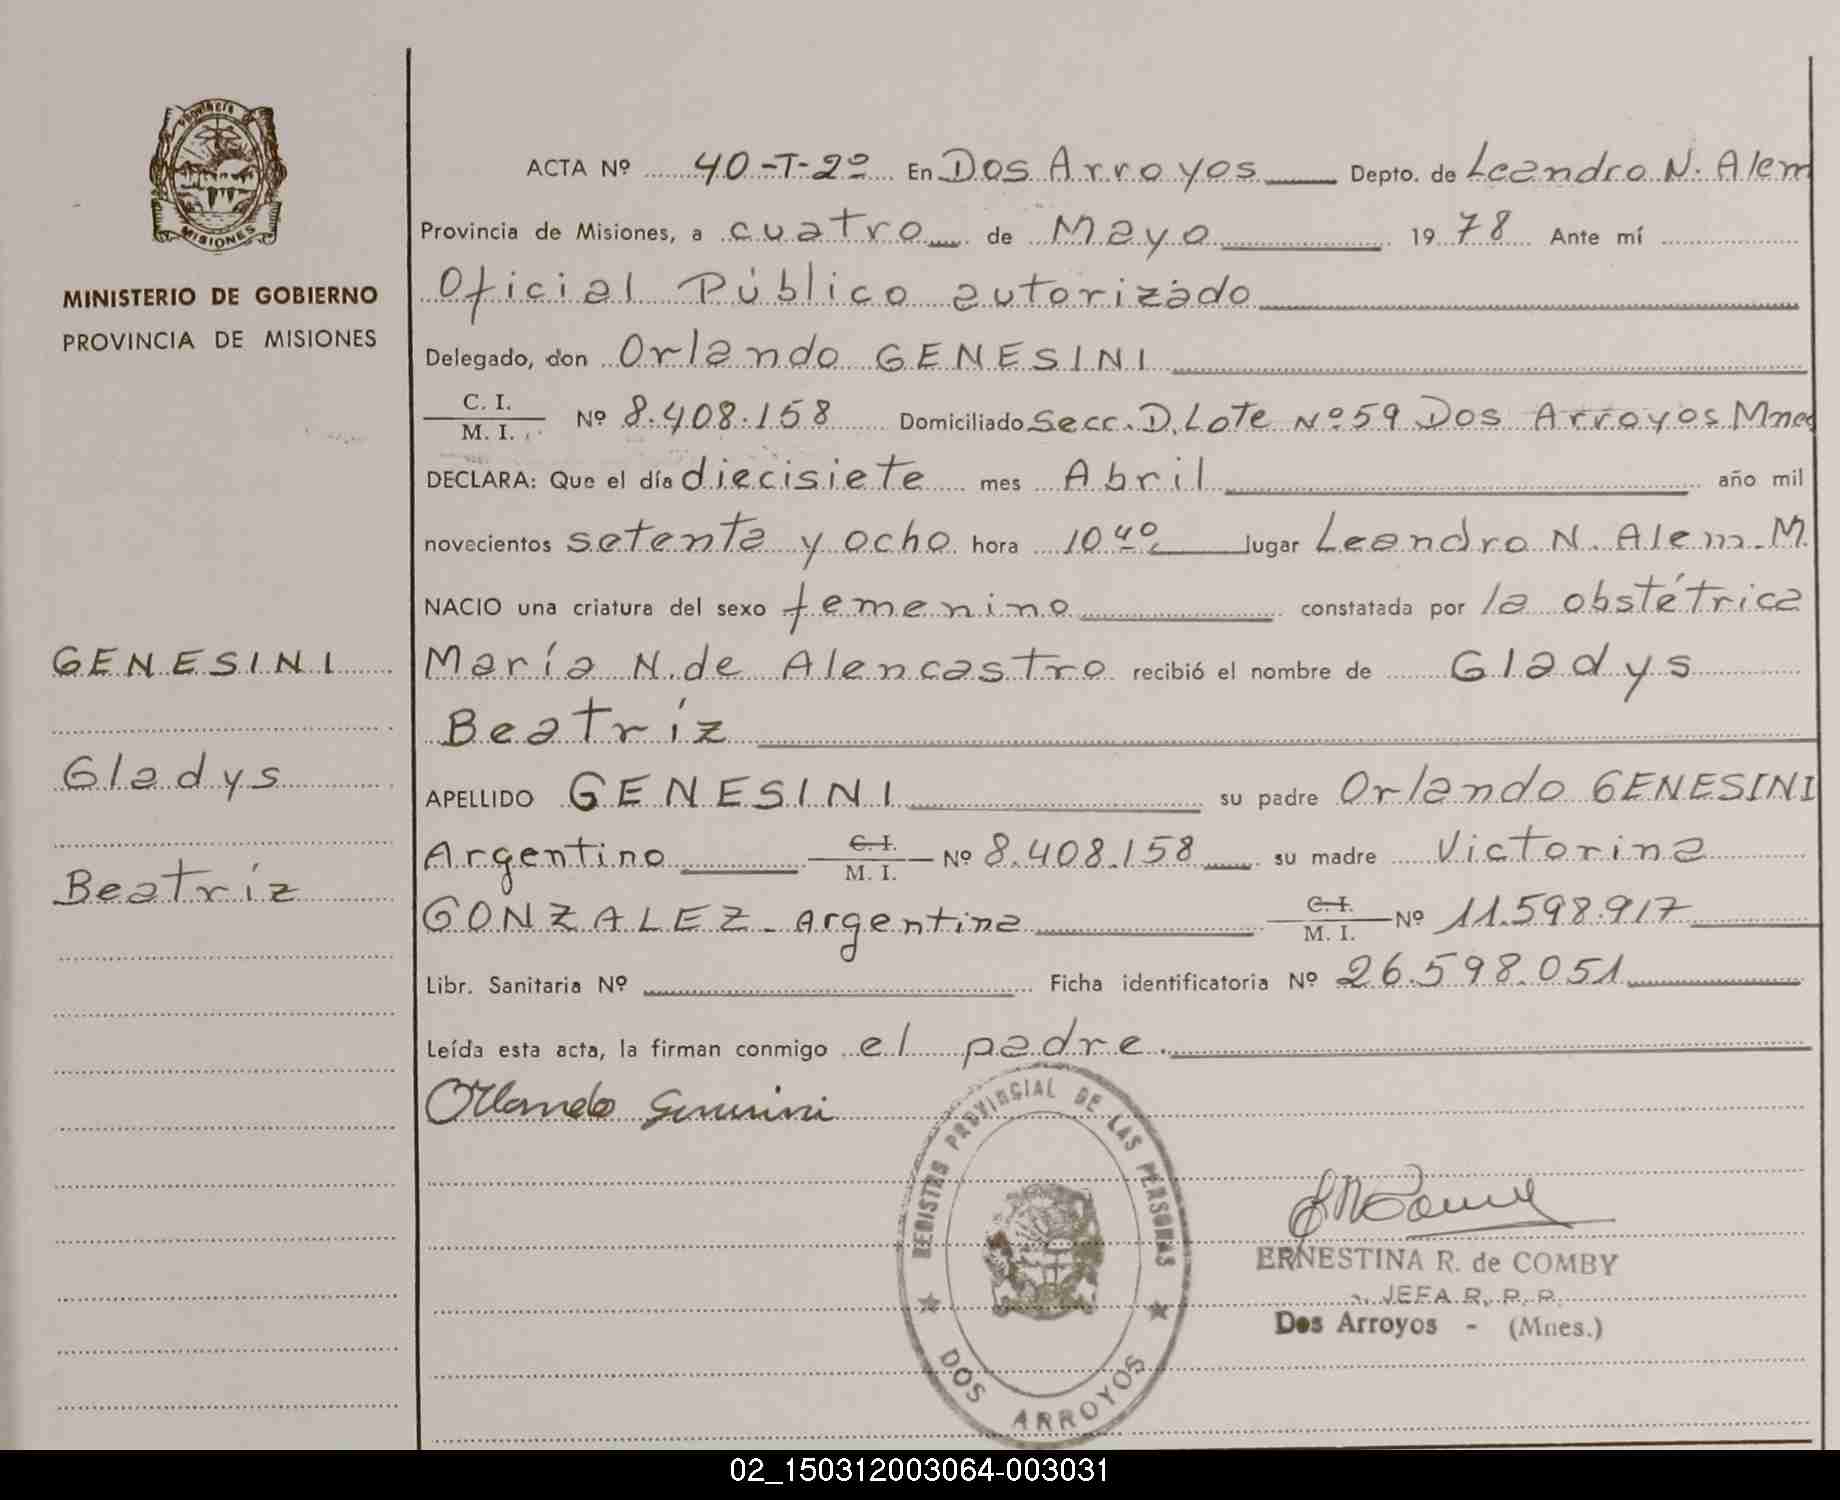 Provincia de
MISIONES
MINISTERIO DE GOBIERNO
PROVINCIA DE MISIONES
GENESINI
Gladys
Beatríz
ACTA Nº 40-T-2º En Dos Arroyos Depto. de Leandro N. Alem
Provincia de Misiones, a cuatro de Mayo 1978 Ante mí
Oficial Público autorizado
Delegado, don Orlando GENESINI
C. I.
M. I. Nº 8.408.158 Domiciliado Secc. D. Lote Nº 59 Dos Arroyos Mnes
DECLARA: Que el día diecisiete mes Abril año mil
novecientos setenta y ocho hora 10 40 lugar Leandro N. Alem. M.
NACIO una criatura del sexo femenino constatada por la obstétrica
María N. de Alencastro recibió el nombre de Gladys
Beatríz
APELLIDO GENESINI su padre Orlando GENESINI
Argentino C. I. M. I. Nº 8.408.158 su madre Victorina
GONZALEZ - Argentina C. I. M. I. Nº 11.598.917
Libr. Sanitaria Nº Ficha identificatoria Nº 26.598.051
Leída esta acta, la firman conmigo el padre.
Orlando Genesini
REGISTRO PROVINCIAL DE LAS PERSONAS
DOS ARROYOS
ERNESTINA R. de COMBY
JEFA R. P. P.
Dos Arroyos - (Mnes.)
02_150312003064-003031